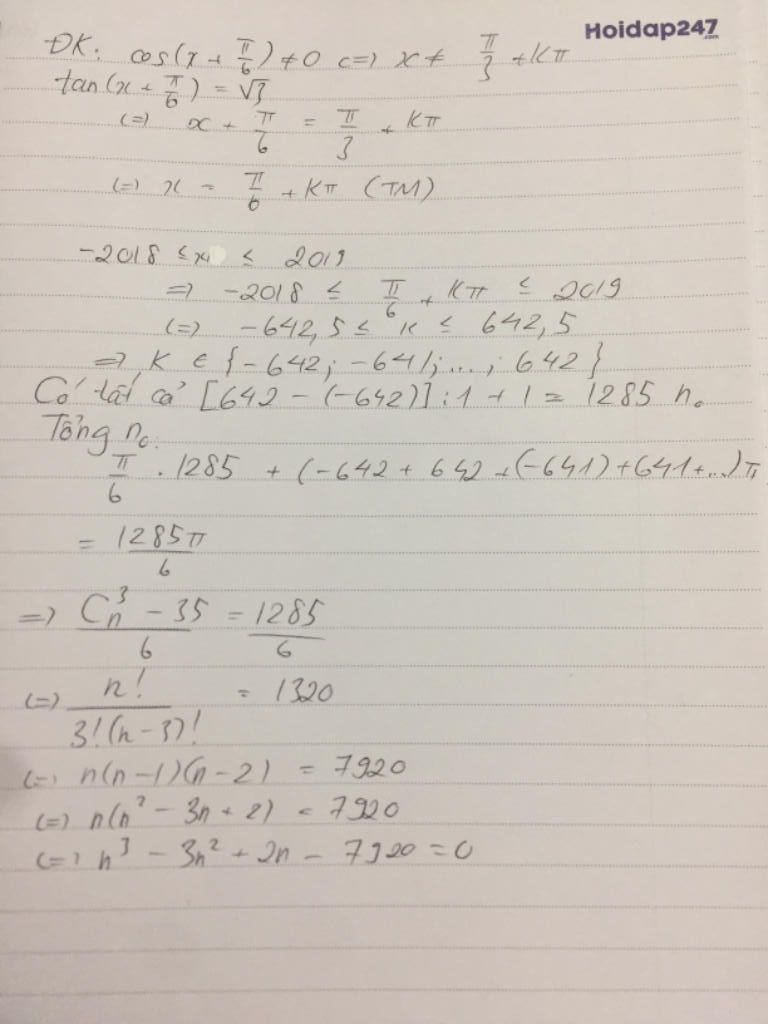 Hoidap247.com
ĐK: cos(x + π/6) ≠ 0 <=> x ≠ π/3 + Kπ
tan(x + π/6) = √3
<=> x + π/6 = π/3 + Kπ
<=> x = π/6 + Kπ (TM)
-2018 ≤ x ≤ 2019
=> -2018 ≤ π/6 + Kπ ≤ 2019
<=> -642,5 ≤ K ≤ 642,5
=> K ∈ {-642; -641; ...; 642}
Có tất cả [642 - (-642)] : 1 + 1 = 1285 no
Tổng no:
π/6 . 1285 + (-642 + 642 + (-641) + 641 + ...)π
= 1285π/6
=> (C_n^3 - 35)/6 = 1285/6
<=> n!/(3!(n-3)!) = 1320
<=> n(n-1)(n-2) = 7920
<=> n(n² - 3n + 2) = 7920
<=> n³ - 3n² + 2n - 7920 = 0